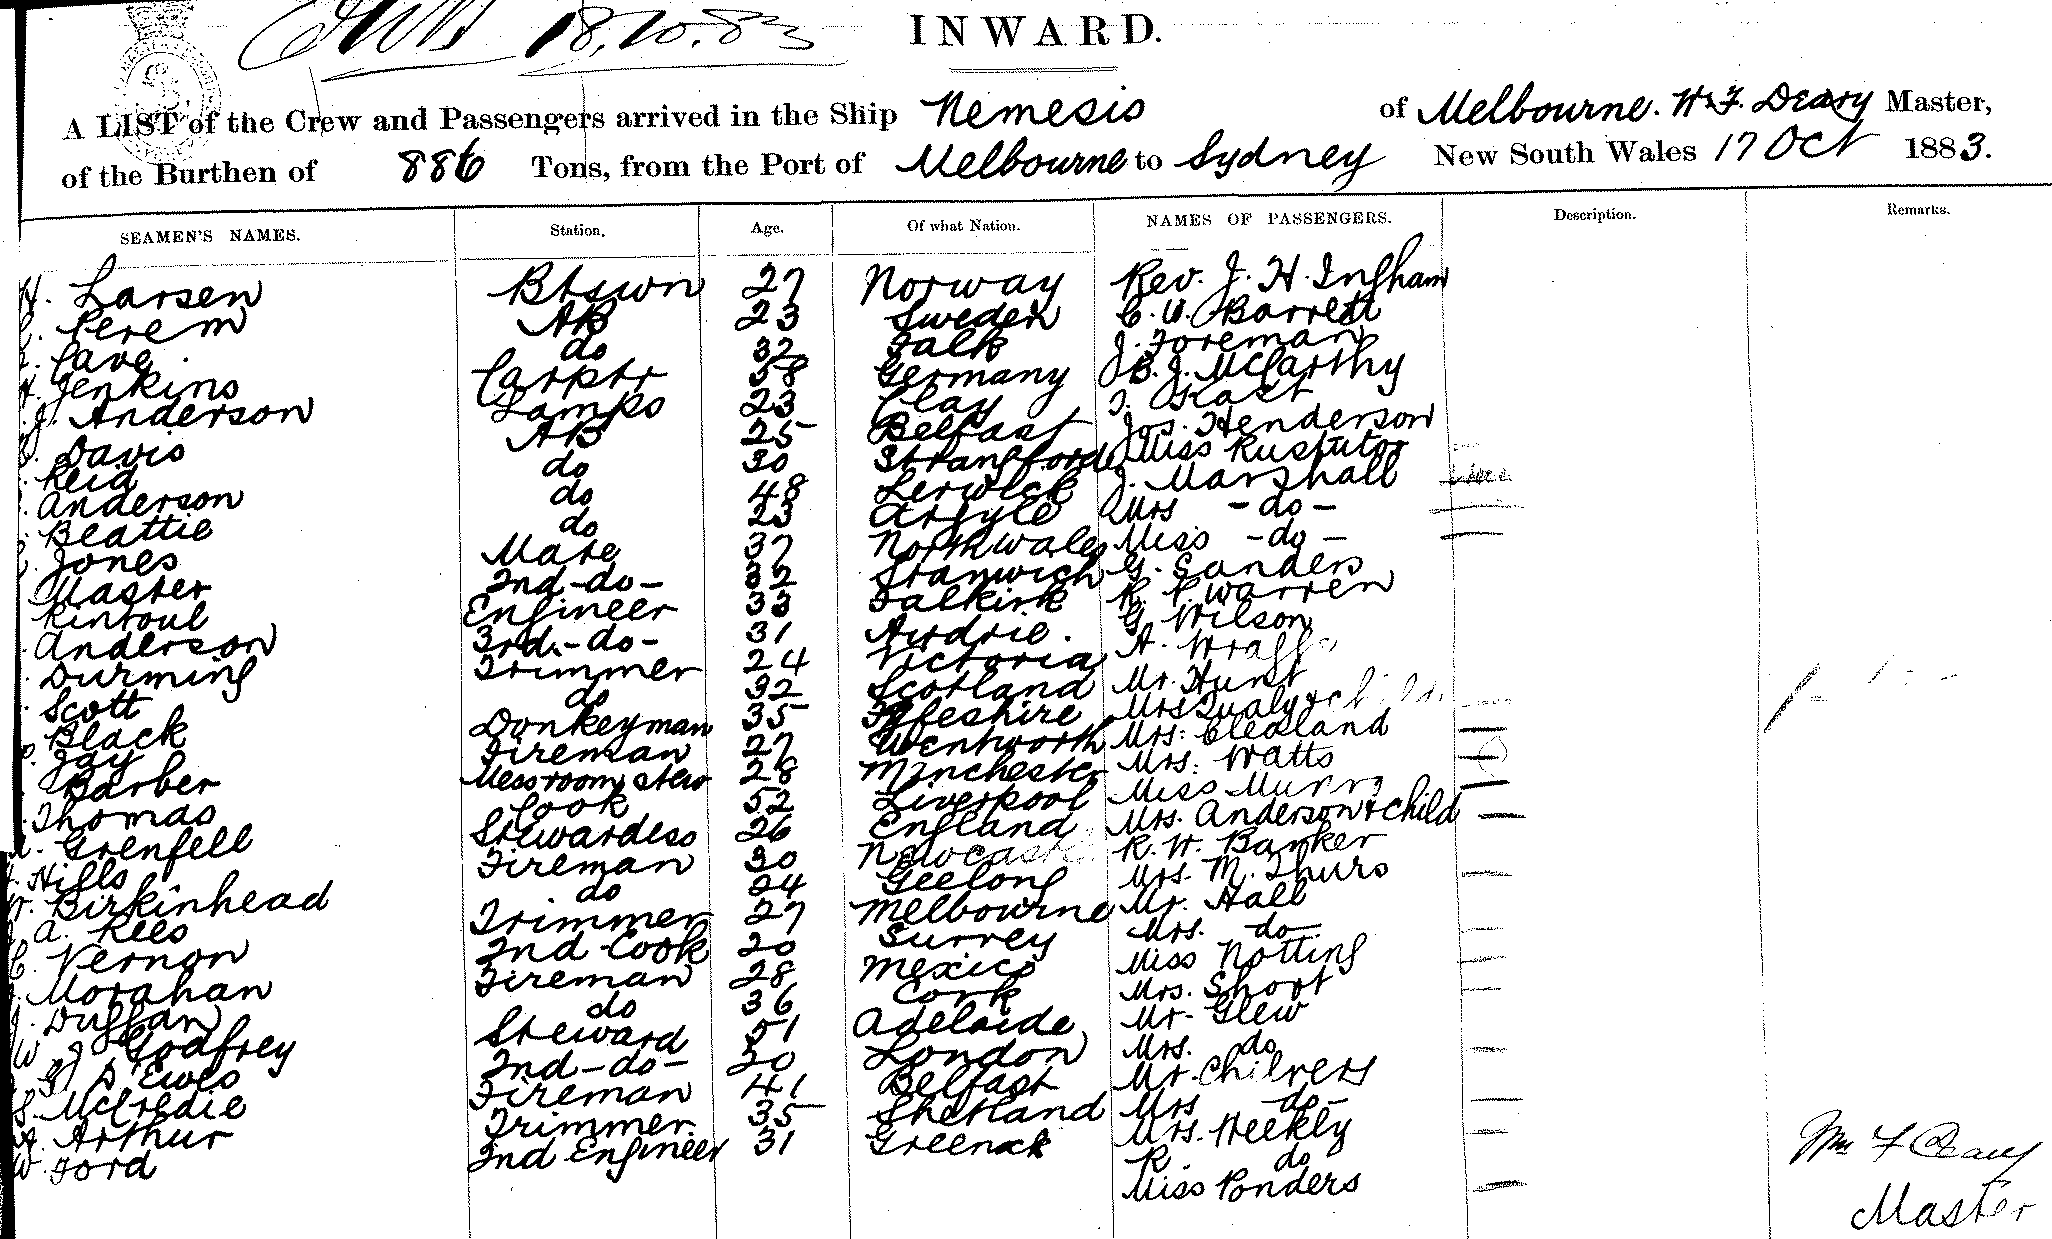 18.10.83
INWARD.
A LIST of the Crew and Passengers arrived in the Ship Nemesis of Melbourne. Master,
of the Burthen of 886 Tons, from the Port of Melbourne to Sydney New South Wales 17 Oct 1883.
SEAMEN'S NAMES. Station. Age. Of what Nation. NAMES OF PASSENGERS. Description. Remarks.
H. Larsen Btswn 27 Norway Rev. J. H. Ingham
Perem AB 23 Sweden Barrett
Cave do 32 Falk J. Foreman
Jenkins Carptr 38 Germany J. McCarthy
J. Anderson Lamps 23 Clay
Davis AB 25 Belfast Jos. Henderson
Reid do 30 Strangford Miss
Anderson do 48 Lerwick J. Marshall
Beattie do 23 Argyle Mrs - do -
Jones Mate 37 Northwales Miss - do -
Master 2nd - do - 32 Stanwich G. Sanders
Rintoul Engineer 33 Falkirk R. P. Warren
Anderson 3rd. - do - 31 Airdrie. G. Wilson
Durming Trimmer 24 Victoria A.
Scott do 32 Scotland Mr. Hunt
Black Donkeyman 35 Fifeshire Mrs
Jay Fireman 27 Wentworth Mrs. Clealand
Barber Messroom stew 28 Minchester Mrs. Watts
Thomas Cook 52 Liverpool Miss
Grenfell Stewardess 26 England Mrs. Anderson & child
Hills Fireman 30 Newcastle R. W. Banker
Birkinhead do 24 Geelong Mrs. M. Thurs
A. Rees Trimmer 27 Melbourne Mr. Hall
Vernon 2nd Cook 20 Surrey Mrs. do
Morahan Fireman 28 Mexico Miss Notting
J. Duggan do 36 Cork Mrs. Short
W J Godfrey Steward 51 Adelaide Mr. Glew
D'Ewes 2nd - do - 20 London Mrs. do
S. McCredie Fireman 41 Belfast Mr. Chilvers
Arthur Trimmer. 35 Shetland Mrs - do -
W. Ford 2nd Engineer 31 Greenock Mrs. Weekly
R. do
Miss Ponders
Wm F Deary
Master